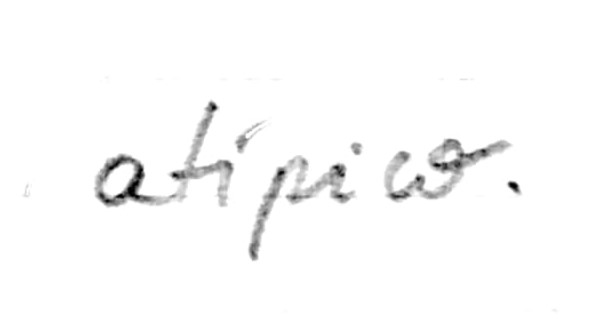 atípico.